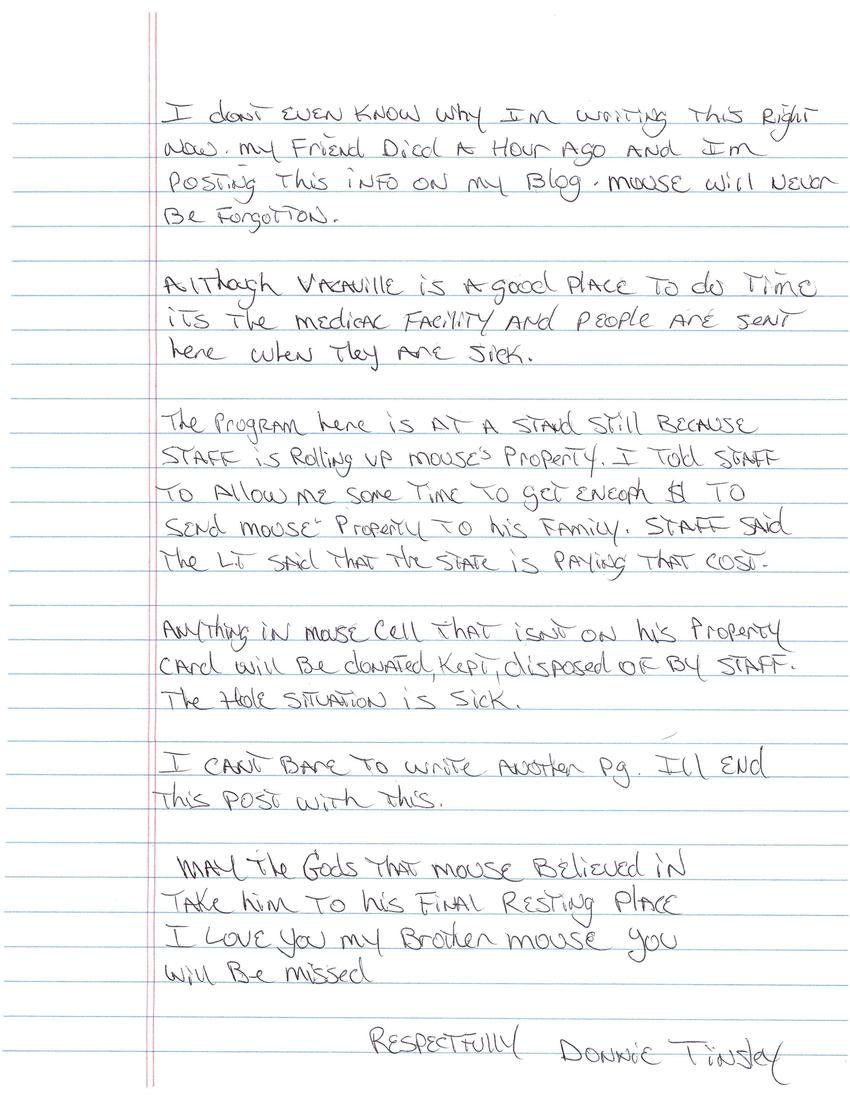 I dont EVEN KNOW why Im writing This Right
Now. my Friend Died A Hour Ago AND Im
POSTING This iNFO ON my Blog. mouse will NEVER
Be ForgoTTON.
AlThough VACAVILLE is A good PLACE To do Time
iTs The medicAL FACiLiTY AND PEOPLE ARE SENT
here when They ARE Sick.
The Program here is AT A STAND STill BECAUSE
STAFF is Rolling UP mouse's Property. I Told STAFF
To Allow me some Time To get ENEOPH $ TO
SEND mouse' Property To his FAmily. STAFF SAid
The LT SAid THAT The STATE is PAYing THAT COST.
ANYThing iN mouse Cell THAT isNT ON his Property
CArd will BE doNATed, KEPT, disposed OF BY STAFF.
The Hole SiTUATION is Sick.
I CANT BARE TO write ANOTher Pg. Ill END
This POST wiTh This.
MAY The Gods THAT mouse BEliEved iN
TAKe him To his FiNAL RESTiNg PLACE
I LOVE You my Brother mouse you
will BE missed
RESPECTFULLY DONNIE TiNsley